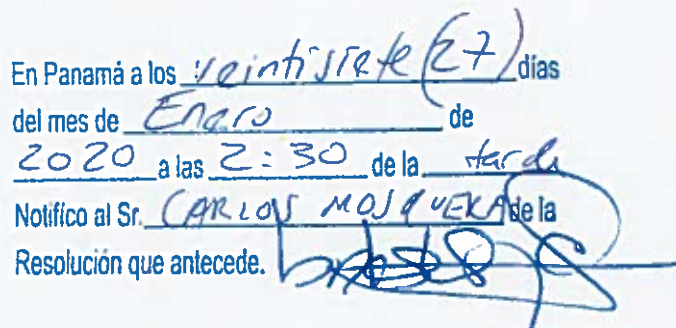 En Panamá a los veintisiete (27) días
del mes de Enero de
2020 a las 2:30 de la tarde
Notifico al Sr. CARLOS MOSQUERA de la
Resolución que antecede.